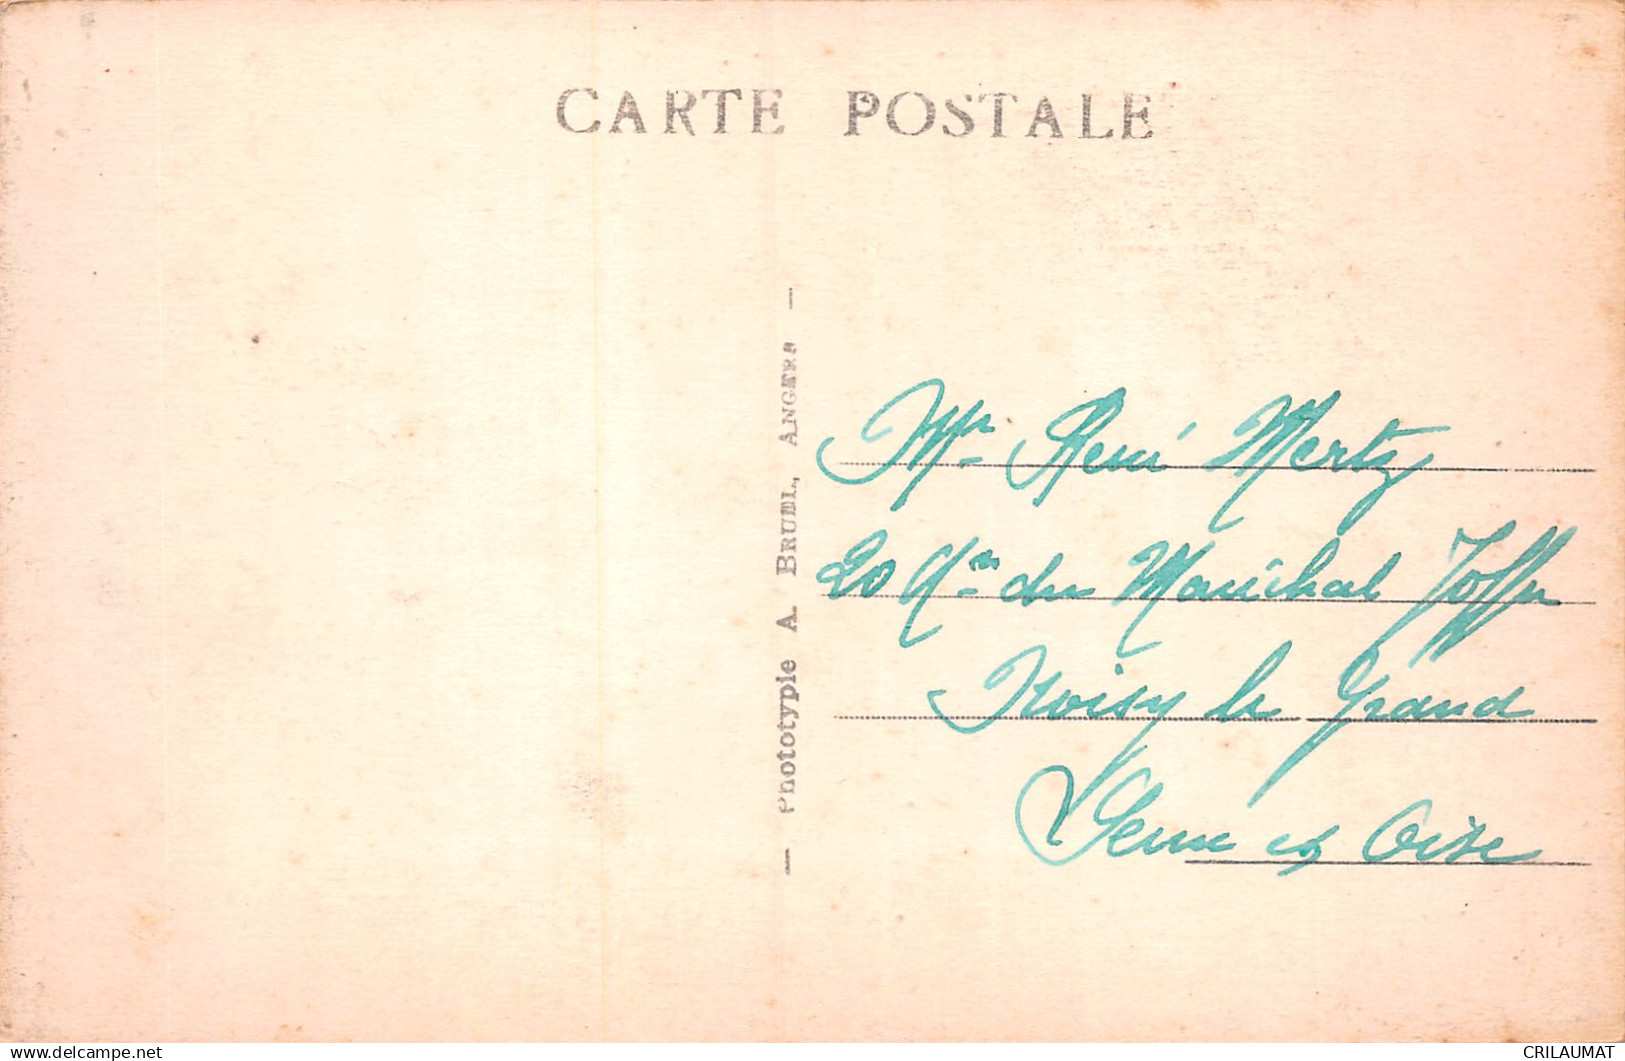 CARTE POSTALE
— Phototypie A. BRUEL, ANGERS —
Mr René Mertz
20 du Maréchal Joffre
Noisy le Grand
Seine et Oise
CRILAUMAT